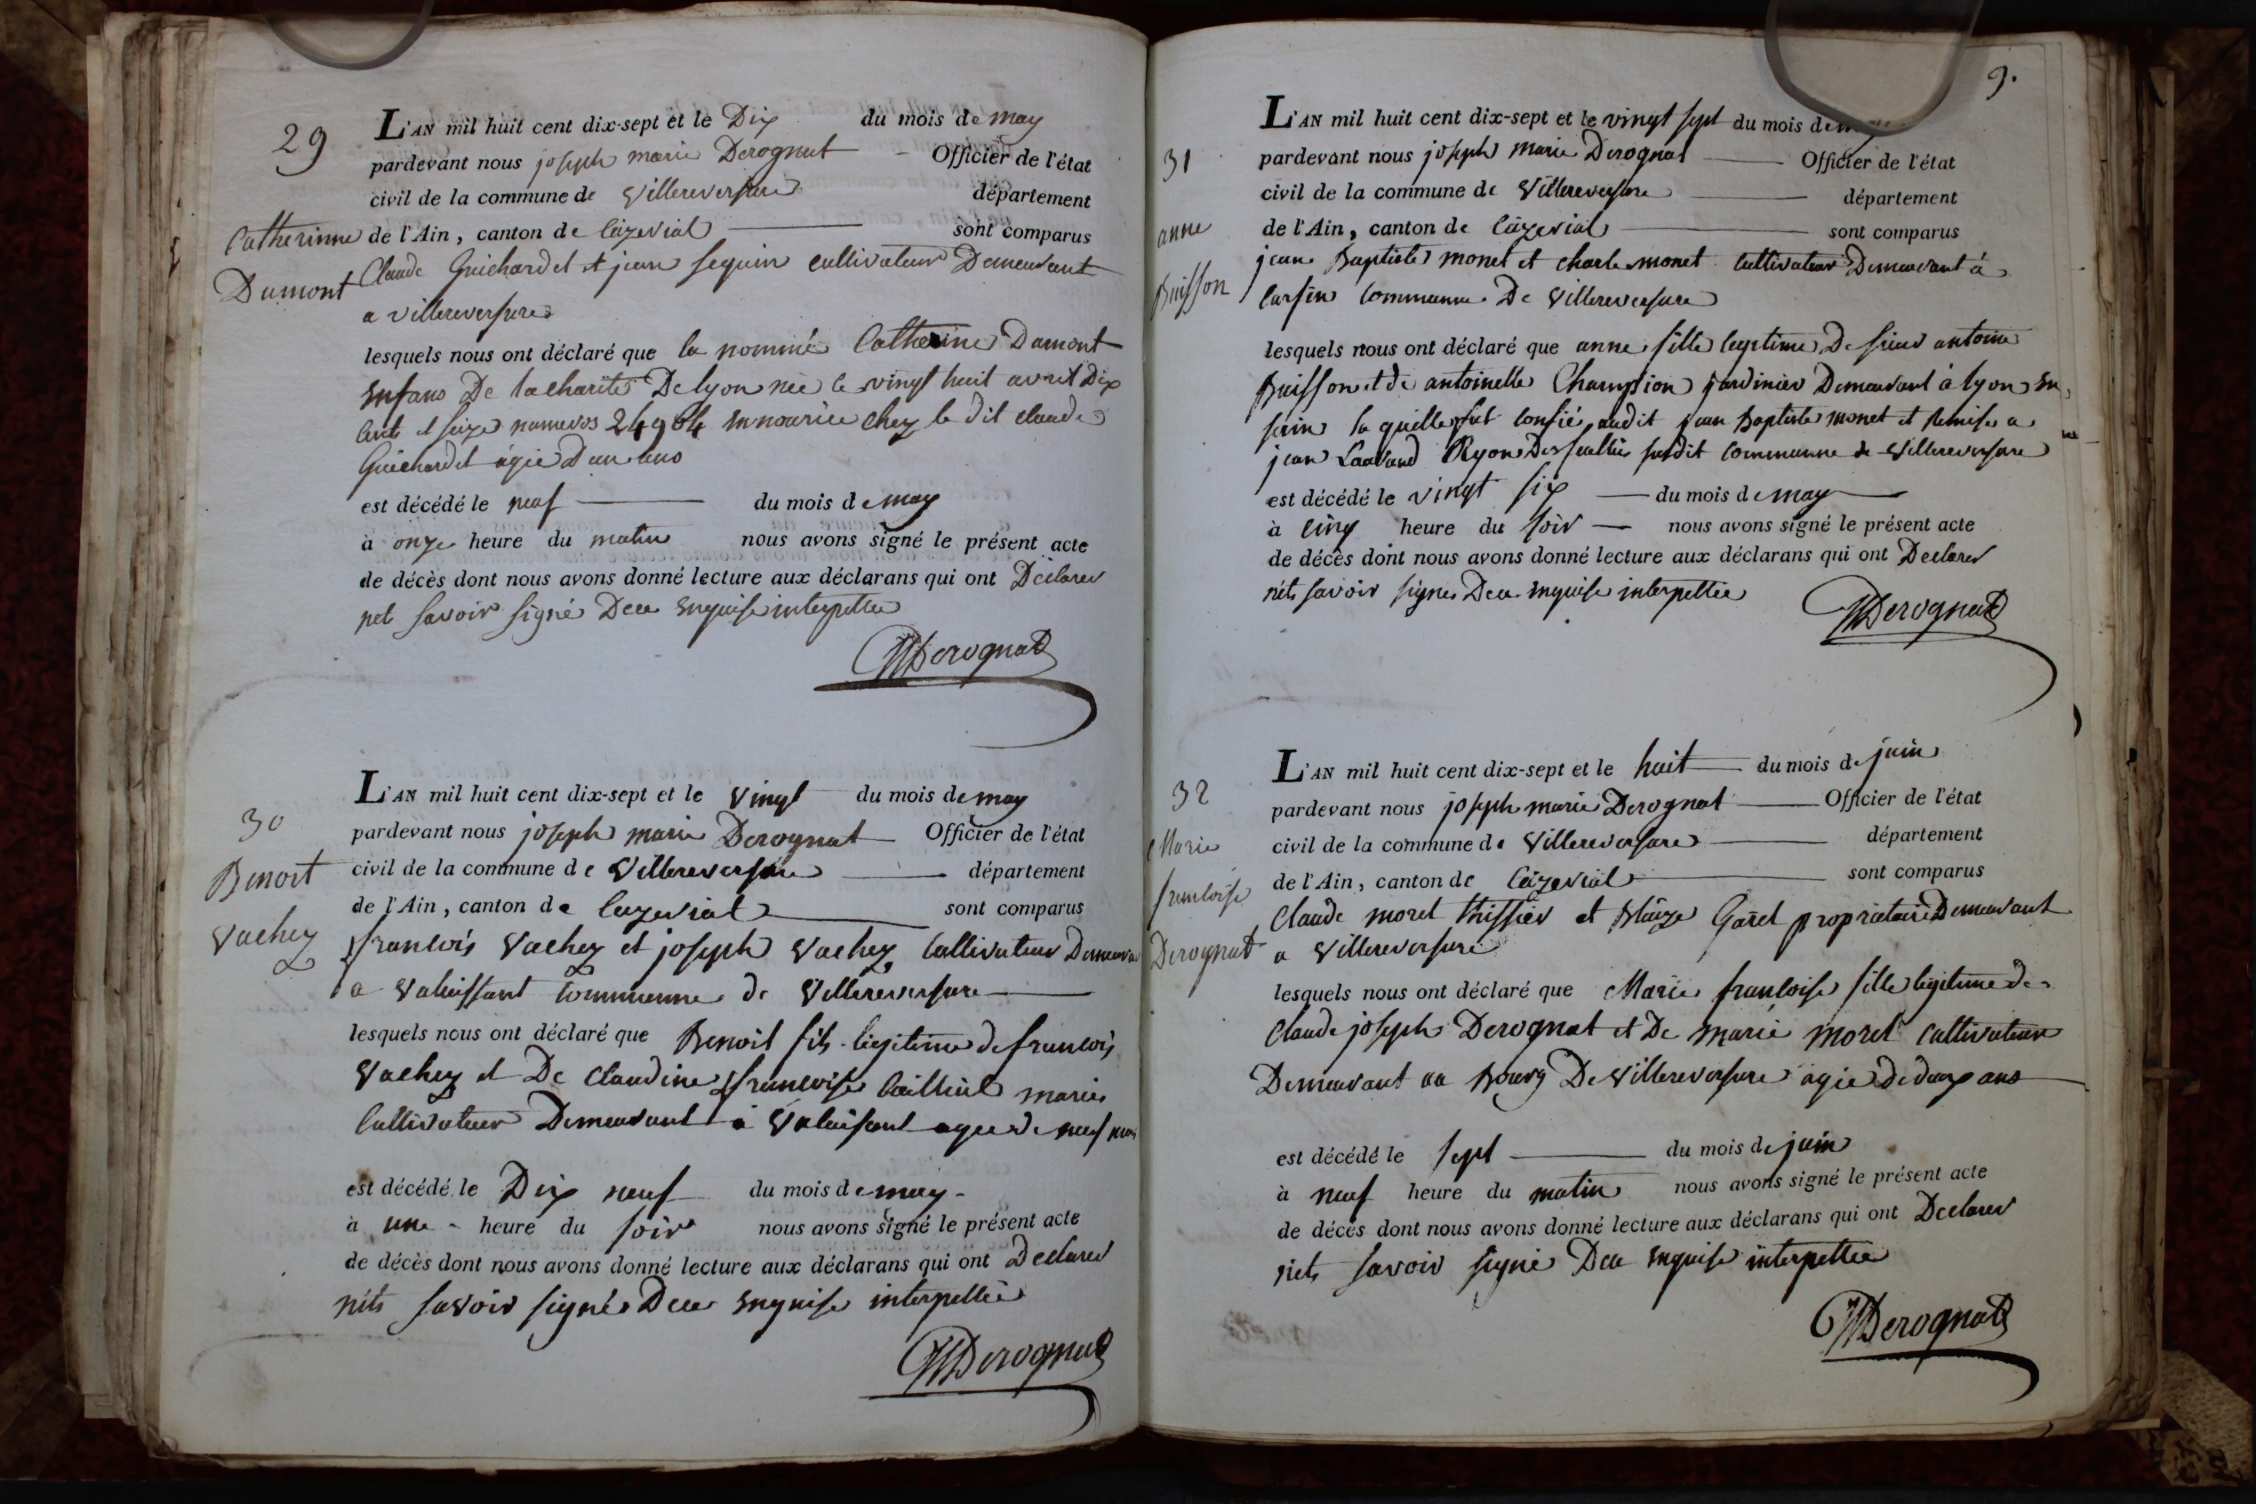 29
Catherinne
Dumont
L'AN mil huit cent dix-sept et le Dix du mois de may
pardevant nous joseph marie Derognat Officier de l'état
civil de la commune de Villereversure département
de l'Ain, canton de Ceizeriat sont comparus
Claude Guichardet et jean seguin cultivateur Demeurant
a villereversure
lesquels nous ont déclaré que la nommé Catherine Dumont
Enfans De la charité De lyon née le vingt huit avril Dix
cents et seize numeros 24964 en nourice chez le dit claude
Guichardet agie D'un ans
est décédé le neuf du mois de may
à onze heure du matin nous avons signé le présent acte
de décès dont nous avons donné lecture aux déclarans qui ont Déclarer
net savoir signé Dece enquise interpellee
Derognat
30
Benoit
Vachez
L'AN mil huit cent dix-sept et le vingt du mois de may
pardevant nous joseph marie Derognat Officier de l'état
civil de la commune de Villereversure département
de l'Ain, canton de Ceizeriat sont comparus
francois Vachez et joseph Vachez Cultivateur
a Valuissant Communne de Villereversure
lesquels nous ont déclaré que Benoit fils legitime de francois
Vachez et De Claudine francoise mariés
Cultivateur Demeurant a Valuisant agee de neuf mois
est décédé le Dix neuf du mois de may
à une heure du soir nous avons signé le présent acte
de décès dont nous avons donné lecture aux déclarans qui ont Declarer
nets savoir signé Dece enquise interpellée
Derognat
9.
31
anne
Buisson
L'AN mil huit cent dix-sept et le vingt sept du mois de
pardevant nous joseph marie Derognat Officier de l'état
civil de la commune de Villereversure département
de l'Ain, canton de Ceizeriat sont comparus
jean Baptiste monet et charle monet Cultivateur Demeurant à
Communne De Villereversure
lesquels nous ont déclaré que anne fille legitime De antoine
Buisson et de antoinette Champion jardinier Demeurant à lyon
la quelle fut confié audit jean Baptiste monet et Remise a
jean susdit Communne de Villereversure
est décédé le vingt six du mois de may
à cinq heure du soir nous avons signé le présent acte
de décès dont nous avons donné lecture aux déclarans qui ont Declarer
nets savoir signer Dece enquise interpellée
Derognat
32
Marie
francoise
Derognat
L'AN mil huit cent dix-sept et le huit du mois de juin
pardevant nous joseph marie Derognat Officier de l'état
civil de la commune de Villereversure département
de l'Ain, canton de Ceizeriat sont comparus
Claude morel thissier et Blaize Garel propriétaire Demeurant
a Villereversure
lesquels nous ont déclaré que Marie francoise fille légitime de
Claude joseph Derognat et De marie morel cultivateur
Demeurant au Bourg De Villereversure agie de deux ans
est décédé le sept du mois de juin
à neuf heure du matin nous avons signé le présent acte
de décès dont nous avons donné lecture aux déclarans qui ont Declarer
nets savoir signé Dece enquise interpellee
Derognat